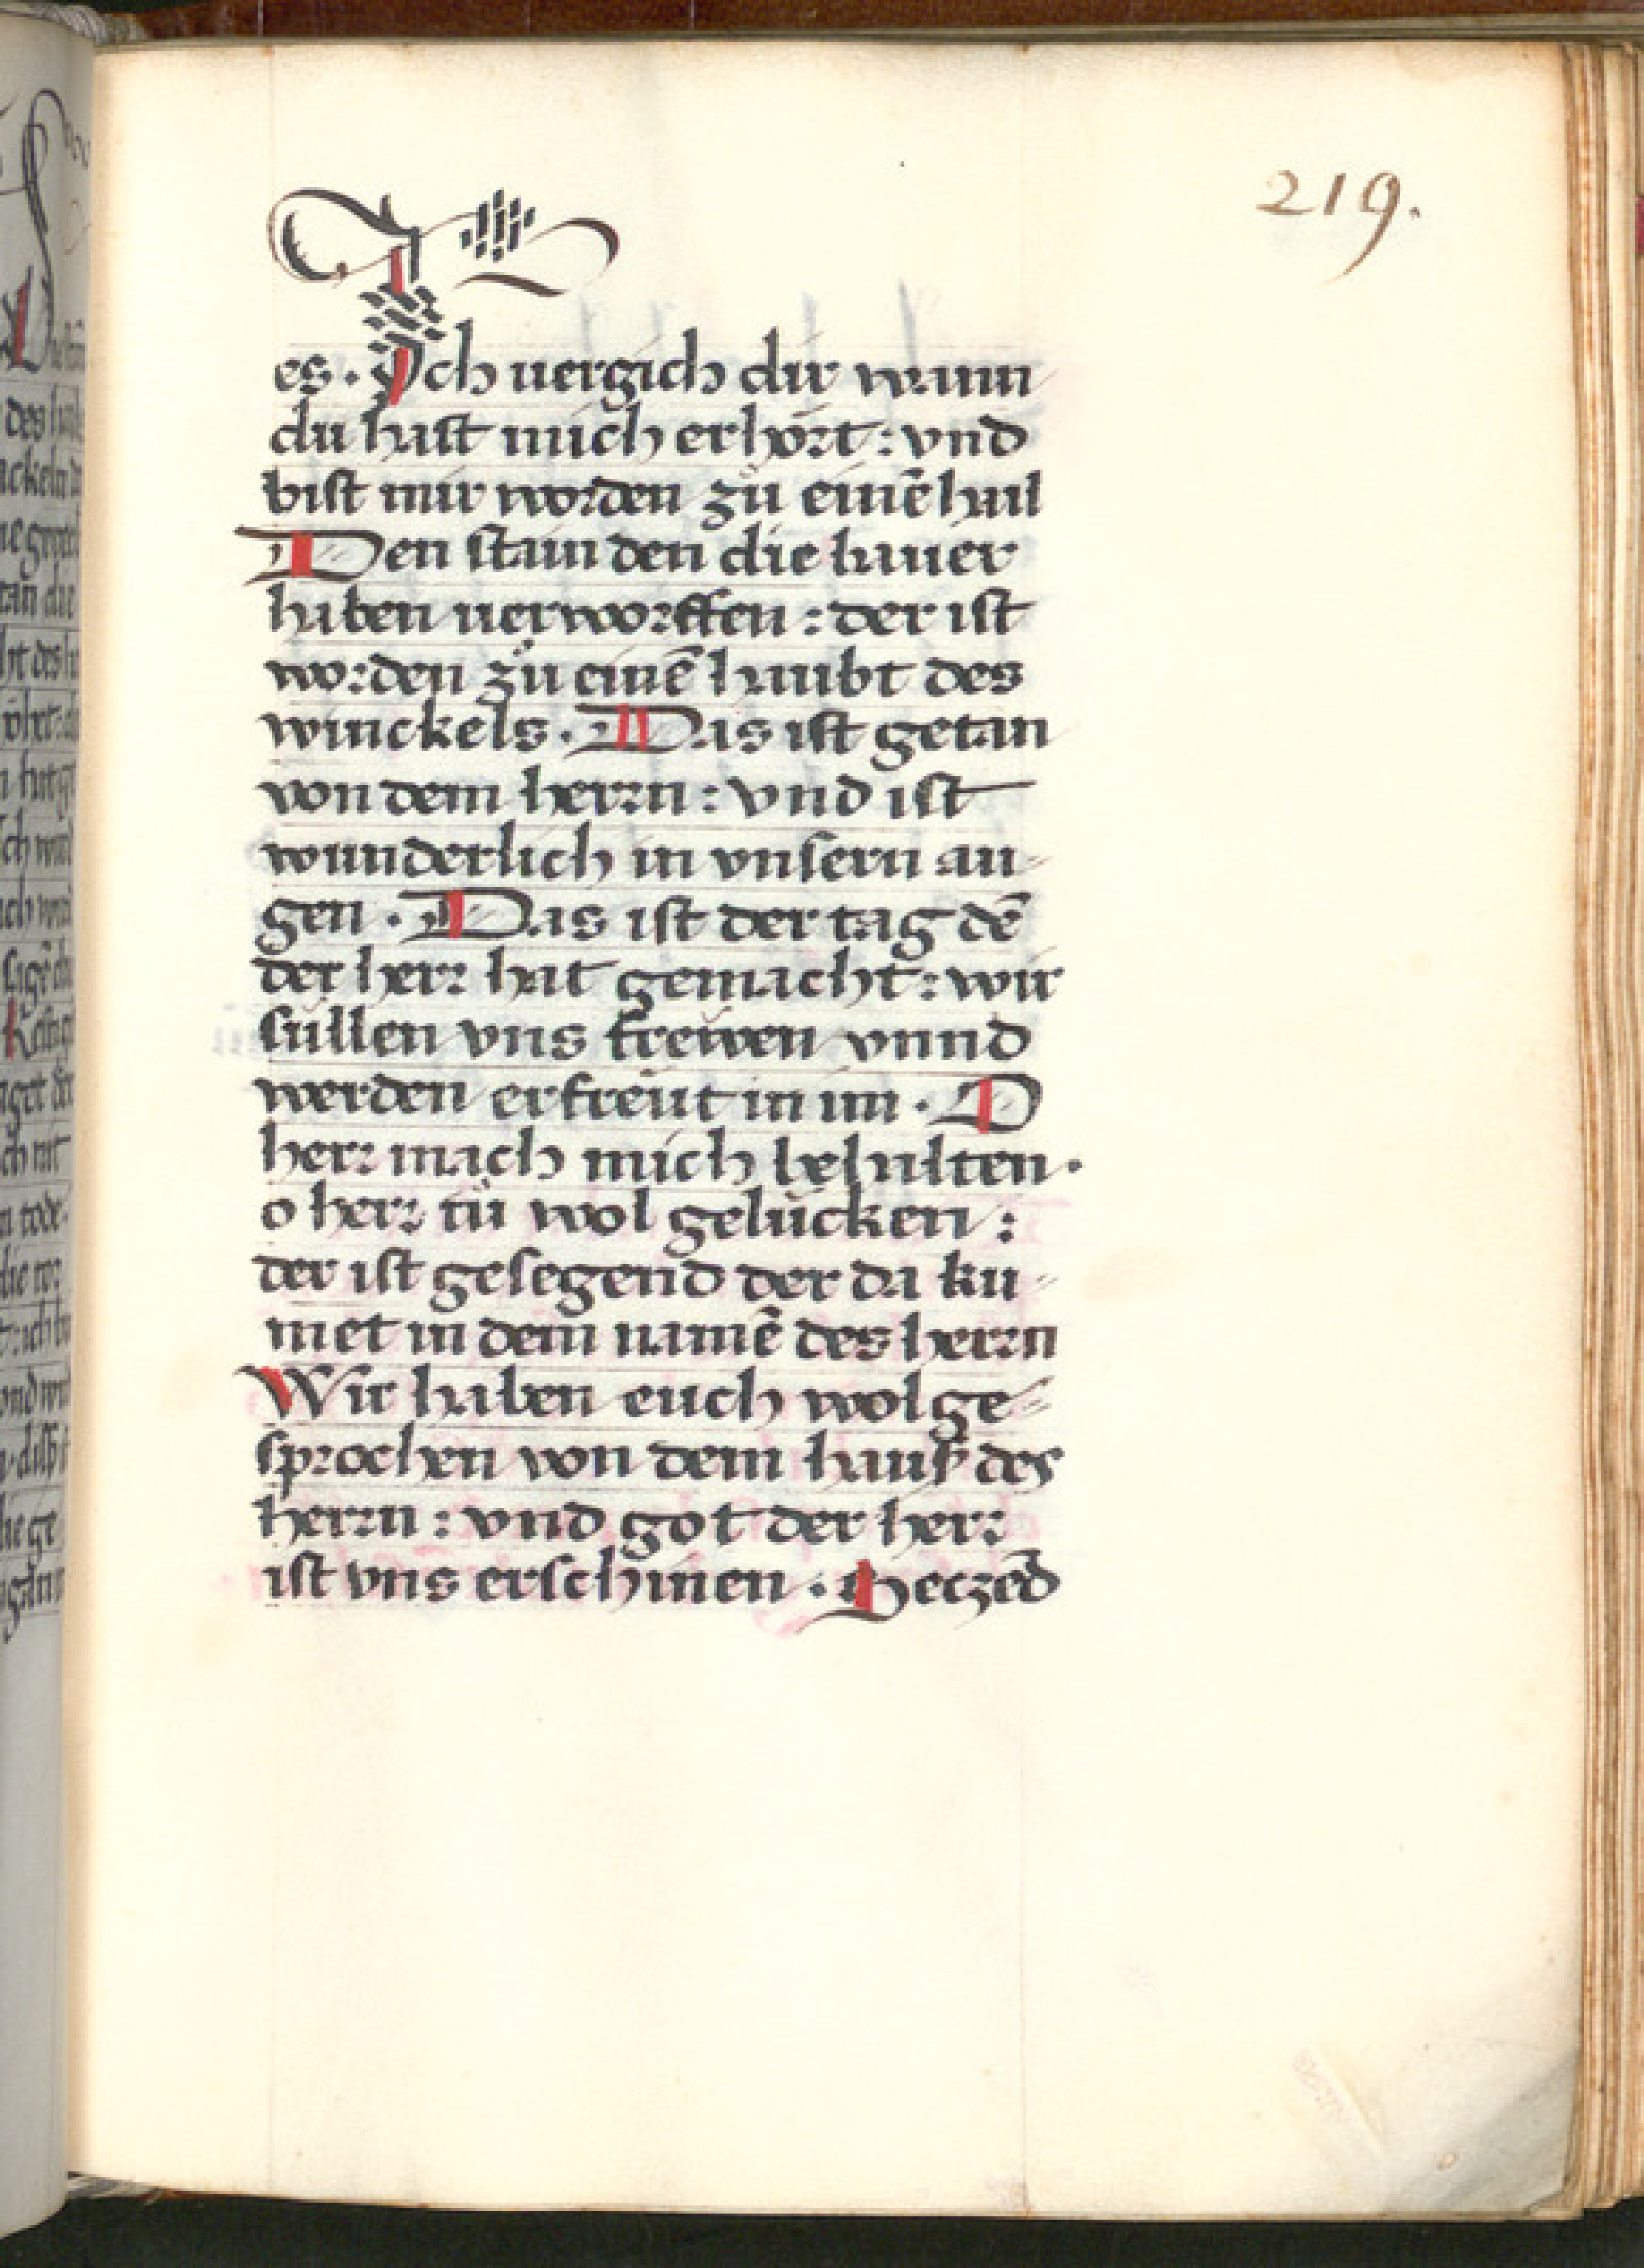 219.
es. Ich uergich dir wann
du hast mich erhört: vnd
bist mir worden zů einē hail
Den stain den die hauer
haben uerworffen: der ist
worden zů einē haubt des
winckels. Das ist getan
von dem herrn: vnd ist
wunderlich in vnsern au-
gen. Das ist der tag dē
der herr hat gemacht: wir
süllen vns freẅen vnnd
werden erfreüt in im. O
herr mach mich behalten.
o herr tů wol gelücken:
der ist gesegend der da ku-
met in dem namē des herrn
Wir haben euch wol ge-
sprochen von dem hauß des
herrn: vnd got der herr
ist vns erschinen. Seczēd